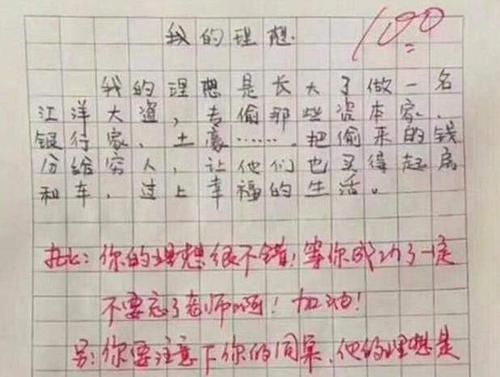 我的理想.
100
我的理想是长大了做一名
江洋大道,专偷那些资本家、
银行家、土豪……。把偷来的钱
分给穷人,让他们也买得起房
和车,过上幸福的生活。
批:你的理想很不错!等你成功了一定
不要忘了老师啊!加油!
另:你要注意下你的同桌,他的理想是